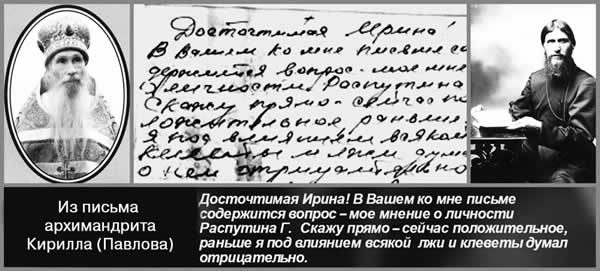 Досточтимая Ирина!
В Вашем ко мне письме со
держится вопрос – мое мне
о личности Распутина
Скажу прямо – сейчас по
ложительное раньше
я под влиянием всякой
клеветы и лжи дум
о нем отрицат
Из письма
архимандрита
Кирилла (Павлова)
Досточтимая Ирина! В Вашем ко мне письме
содержится вопрос – мое мнение о личности
Распутина Г. Скажу прямо – сейчас положительное,
раньше я под влиянием всякой лжи и клеветы думал
отрицательно.